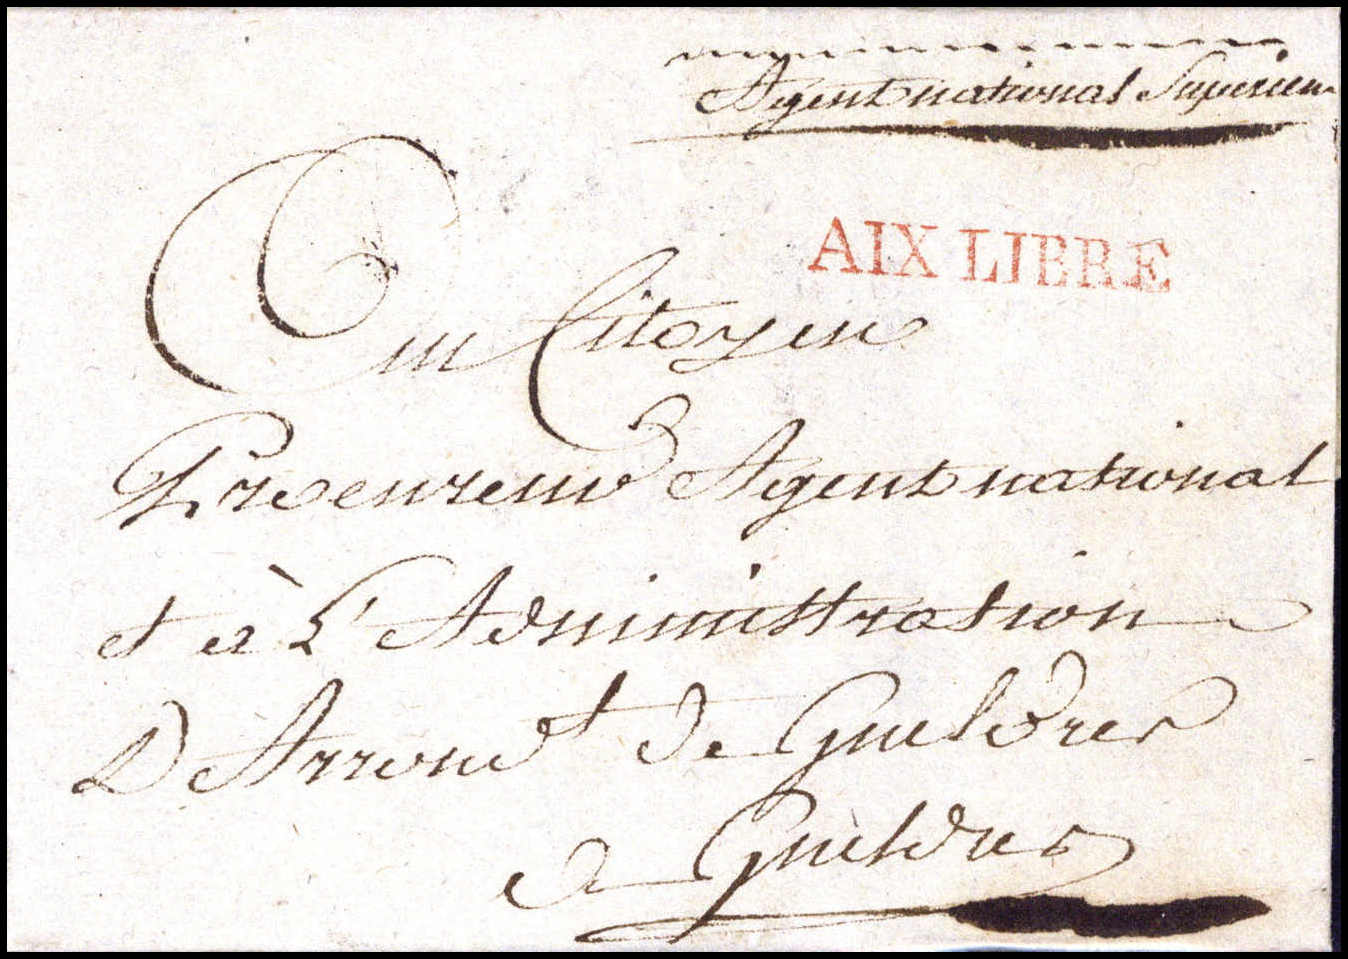 Agent national Supérieur
AIX LIBRE
Au Citoyen
Procureur Agent national
et à L'Administration
D'Arrond.t de Gueldres
a Gueldres